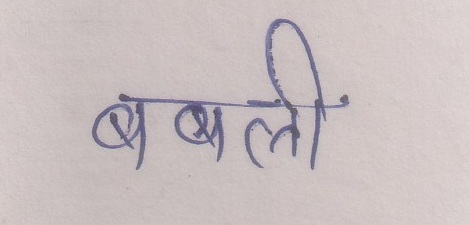 बबली